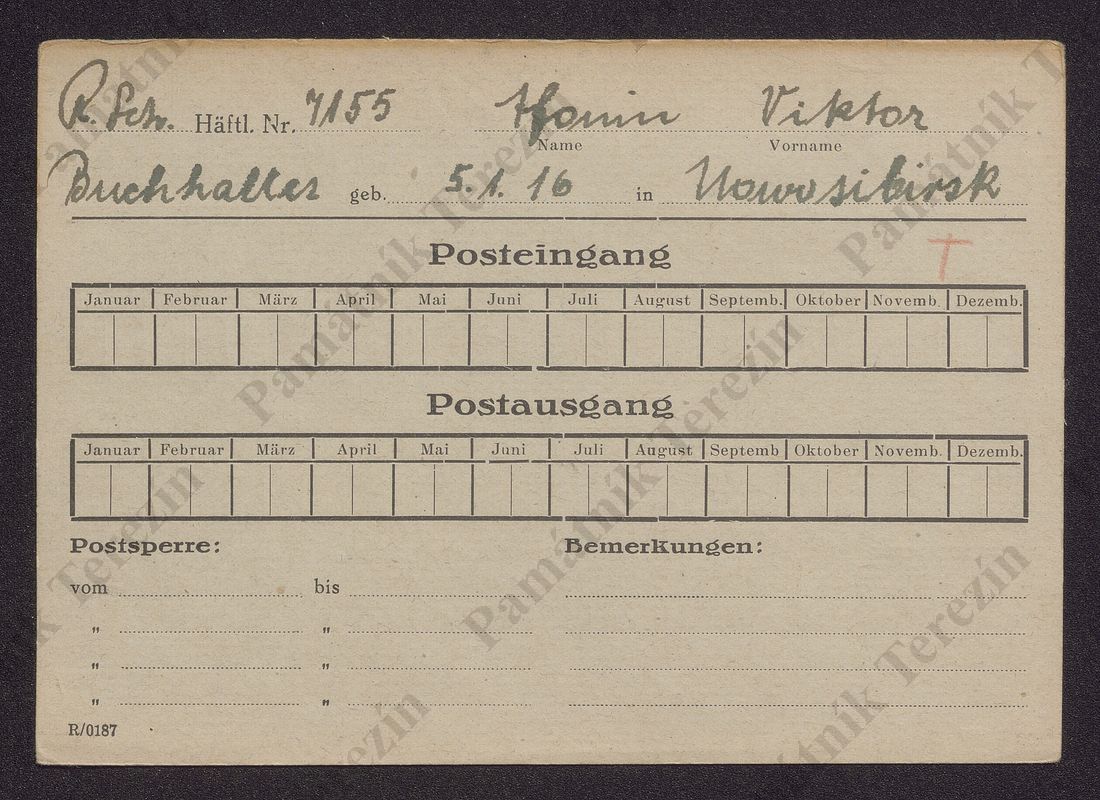 R. Sch. Häftl. Nr. 7155 Viktor
Name Vorname
Buchhalter geb. 5. 1. 16 in Nowosibirsk
T
Posteingang
Januar Februar März April Mai Juni Juli August Septemb. Oktober Novemb. Dezemb.
Postausgang
Januar Februar März April Mai Juni Juli August Septemb Oktober Novemb. Dezemb.
Postsperre: Bemerkungen:
vom bis
„ „
„ „
„ „
R/0187
Památník Terezín
Památník Terezín
Památník Terezín
Památník Terezín